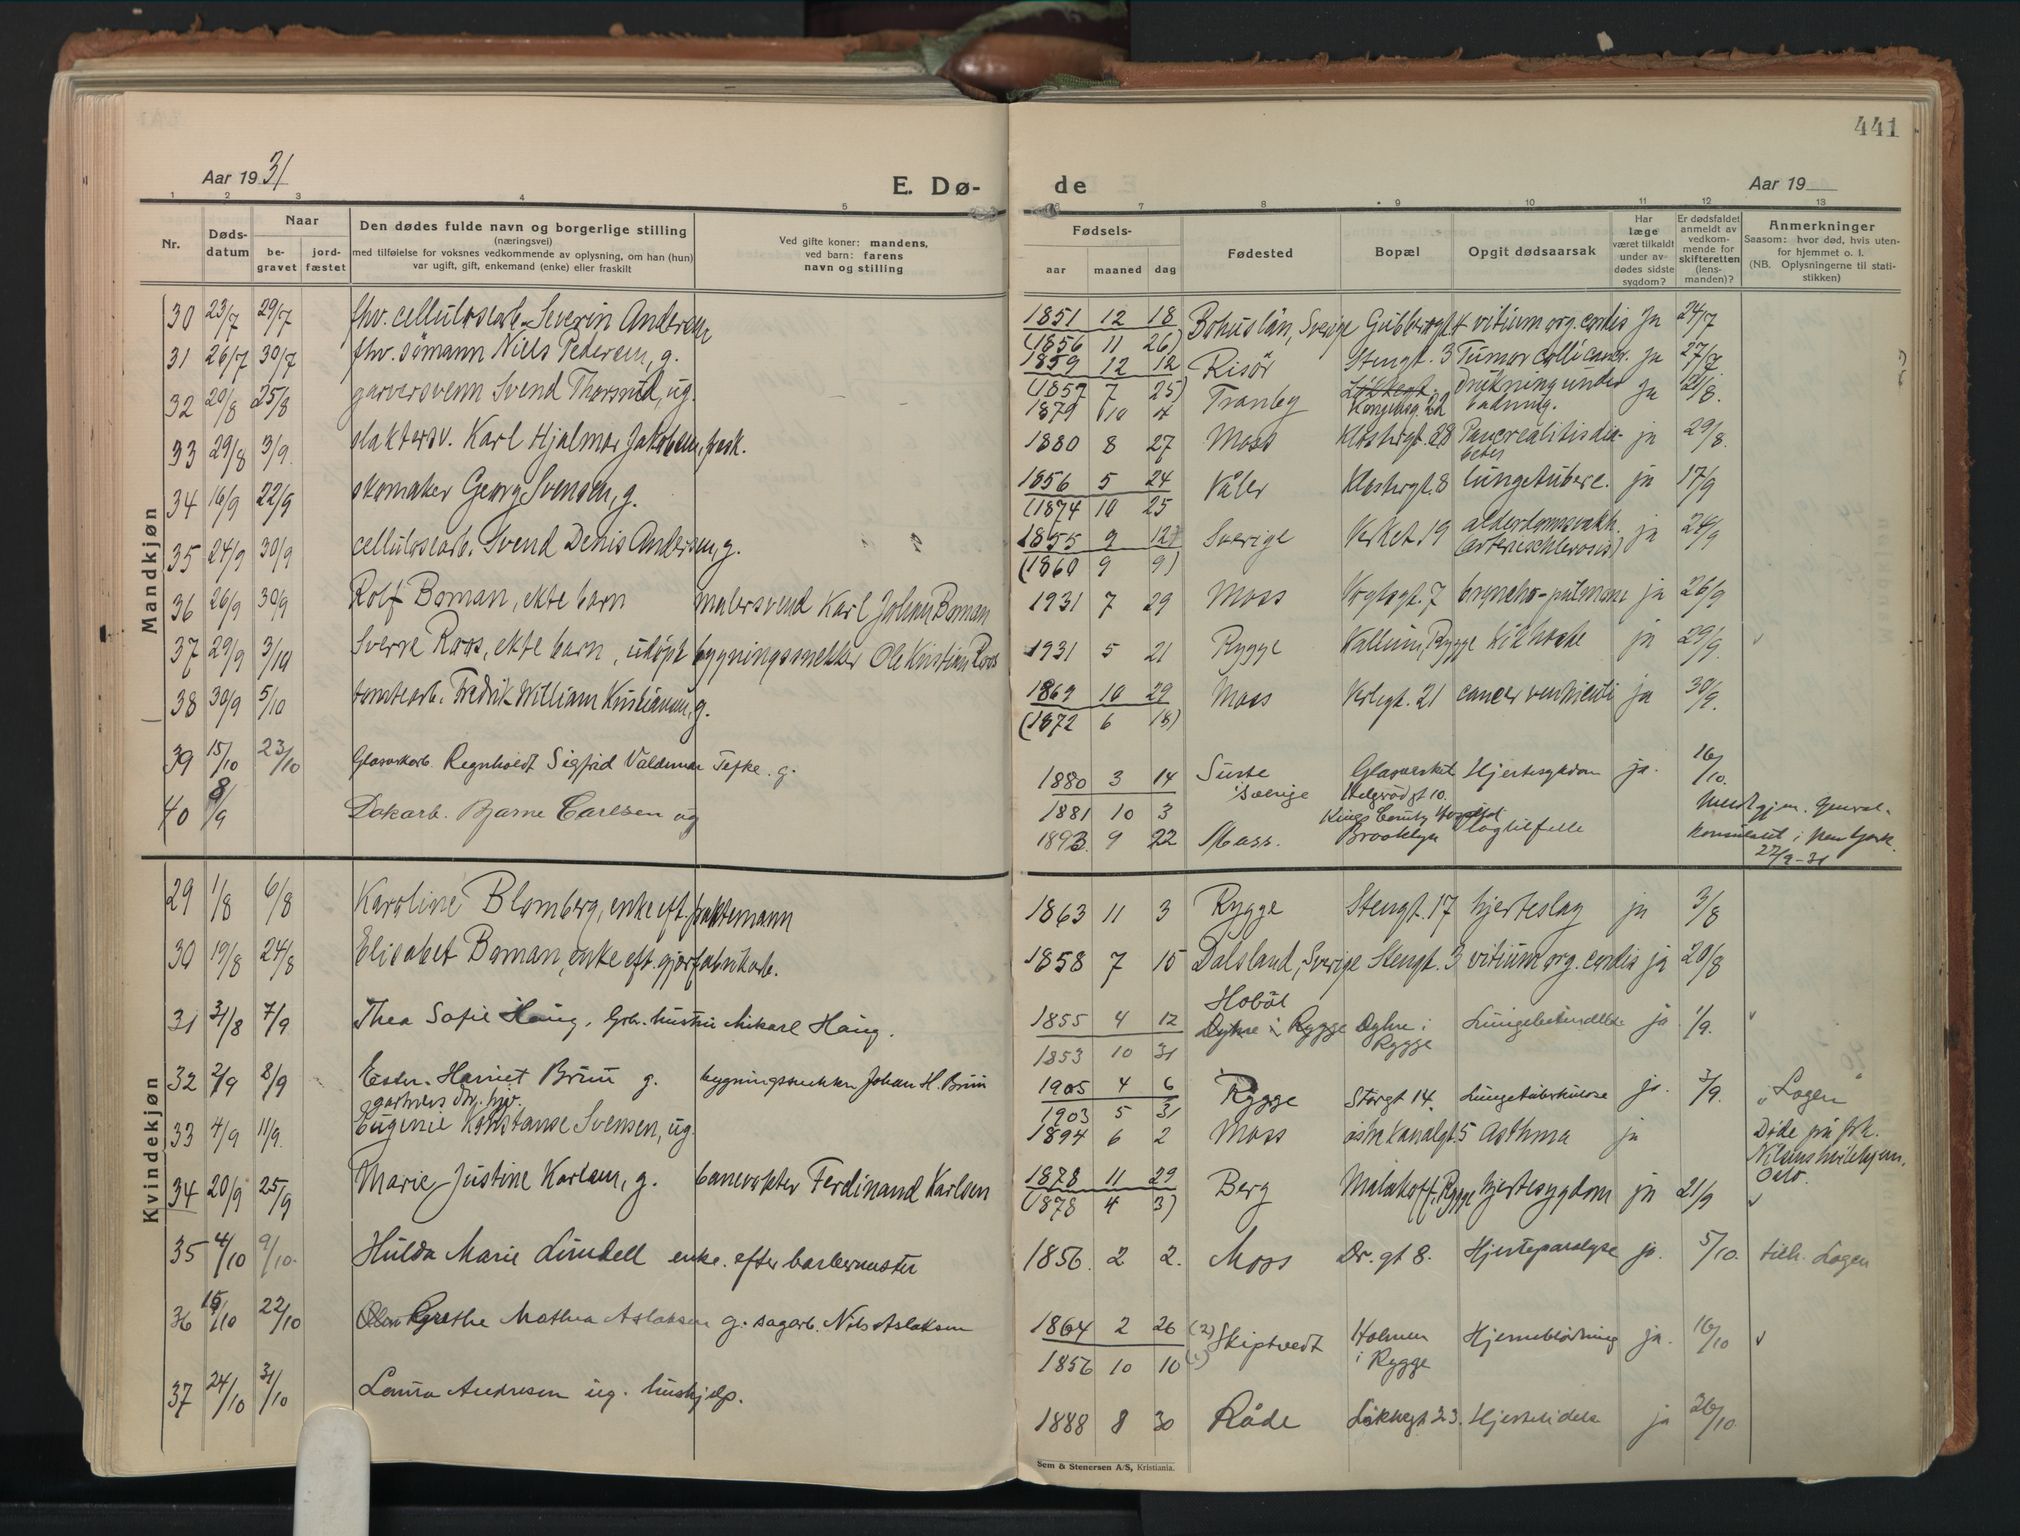 441
Aar 1931
E. Dø-
de
Aar 19
1 2 3 4 5 6 7 8 9 10 11 12 13
Nr.
Døds-
datum
Naar
be-
gravet
jord-
fæstet
Den dødes fulde navn og borgerlige stilling
(næringsvei)
med tilføielse for voksnes vedkommende av oplysning, om han (hun)
var ugift, gift, enkemand (enke) eller fraskilt
Ved gifte koner: mandens,
ved barn: farens
navn og stilling
Fødsels-
aar maaned dag
Fødested
Bopæl
Opgit dødsaarsak
Har
læge
været tilkaldt
under av-
dødes sidste
sygdom?
Er dødsfaldet
anmeldt av
vedkom-
mende for
skifteretten
(lens-
manden)?
Anmerkninger
Saasom: hvor død, hvis uten-
for hjemmet o. l.
(NB. Oplysningerne til stati-
stikken)
Mandkjøn
30 23/7 29/7 fhv. cellulosearb. Severin Andersen 1851 12 18 Bohuslän, Sverige Gubbegt 4 vitium org. cordis Ja 24/7
(1856 11 26)
31 26/7 30/7 fhv. sømann Niels Pedersen, g. 1859 12 12 Risör Stengt. 3 Tumor colli cancr. ja 27/7
(1857 7 25)
32 20/8 25/8 garversvenn Svend Thorsrud, ug. 1879 10 4 Tranby Kongensg. 22 Drukning under badning. Ja 21/8.
33 29/8 3/9. slaktersv. Karl Hjalmar Jakobsen, frask. 1880 8 27 Moss Klostergt. 28 Pancreatitis dia-
betes ja 29/8.
34 16/9 22/9 skomaker Georg Svensen, g. 1856 5 24 Våler Klostergt. 8 lungetuberc. ja 17/9
(1874 10 25
35 24/9 30/9 cellulosearb. Svend Denis Andersen, g. 1855 9 12 Sverige Verket 19 alderdomssvakh.
(arterischlerosis) ja 24/9
(1860 9 9)
36 26/9 30/9 Rolf Boman, ekte barn malersvend Karl Johan Boman 1931 7 29 Moss Vogtsgt. 7 broncho-pulmon. ja 26/9
37 29/9 3/10 Sverre Roos, ekte barn, udöpt bygningssnekker Ole Kristian Roos 1931 5 21 Rygge Vallum, Rygge kikhoste ja 29/9.
38 30/9 5/10 tomtearb. Fredrik William Kristiansen, g. 1869 10 29 Moss Verlegt. 21 cancer ventriculi ja 30/9.
(1872 6 18)
39 15/10 23/10 Glasverkarb. Regnholdt Sigfrid Valdemar Tefke. g. 1880 3 14 Surte
i Sverige Glasverket
Helgerödgt 10. Hjertesykdom ja. 16/10.
1881 10 3
40 8/9 Dokarb. Bjarne Carlsen ug 1893 9 22 Moss. Kings County Hospital
Brooklyn Slagtilfelle Meldt gjm. General-
konsulatet i New York.
22/9-31
Kvindekjøn
29 1/8 6/8 Karoline Blomberg, enke eft. fraktemann 1863 11 3 Rygge Stengt. 17 hjerteslag ja 3/8
30 19/8 24/8 Elisabet Boman, enke eft. gjær fabrikarb. 1858 7 15 Dalsland, Sverige Stengt. 3 vitium org. cordis ja 20/8
31 31/8 7/9 Thea Sofie Haug, Grb. hustru Mikael Haug. 1855 4 12 Hobøl
Dyhre i Rygge Dyhre i
Rygge Lungebetendelse ja 1/9.
1853 10 31
32 2/9 8/9 Ester Harriet Bruu g. bygningssnekker Johan H. Bruu 1905 4 6 Rygge Storgt 14. Lungetuberkulose ja. 3/9. "Logen"
1903 5 31
33 4/9 11/9. Eugenie Konstanse Svensen, ug. 1894 6 2 Moss østre Kanalgt. 5 Asthma ja Døde på frk.
Oslo.
34 20/9 25/9 Marie Justine Karlsen, g. banevokter Ferdinand Karlsen 1878 11 29 Berg Malakoff, Rygge hjertesygdom ja 21/9
(1878 4 3)
35 4/10 9/10. Hulda Marie Lundell enke. efter barbermester 1856 2 2. Moss Dr. gt 8. Hjerteparalyse ja. 5/10. tilh. Logen
36 15/10 22/10 Grethe Mathea Aslaksen g. sagarb. Nils Aslaksen 1864 2 26 (2) Skiptvedt Holmen
i Rygge Hjerneblødning ja. 16/10
1856 10 10 (1)
37 24/10 31/10 Laura Andresen ug. hushjelp. 1888 8 30 Råde Løkkegt 23. Hjertelidelse ja 26/10.
Sem & Stenersen A/S, Kristiania.